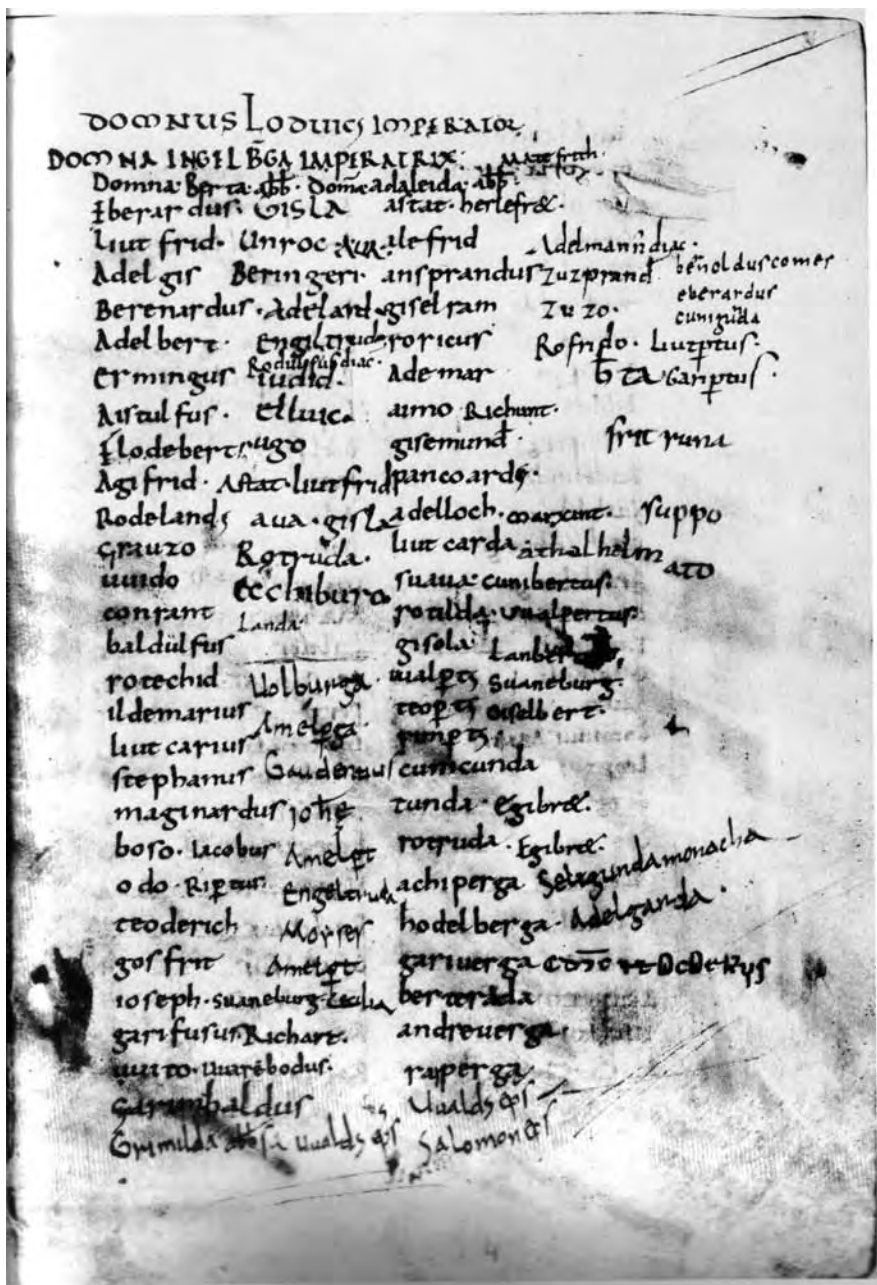 DOMNUS LODUICS IMPERATOR
DOMNA INGELBGA IMPERATRIX
Domna Berta abb. Domna adaleida abb.
Eberardus. GISLA astat. herlefred.
Liutfrid. Unroc. AUA. alefrid Adelmann diac.
Adelgis Beringeri ansprandus Zuzprand benoldus comes
eberardus
Berenardus. Adelard. giselram Zuzo. cunigūda
Adelbert. Engiltruda roricus Rofrido. Liutptus.
Rodulfus diac.
Ermingus iudid. Ademar bta Gariptus.
Aistulfus. Elluic. aimo Richunt.
Flodebert. ugo gisemund. frit runa
Agifrid. Astat. liutfrid pancoards.
Rodelands aua. gisla adelloch. suppo
Grauzo Rotruda. liutcarda athalhelm
uuido Eccliburg suaua. cunibertus. ATO
conrant Landa rotilda. Uualpertus.
baldulfus gisola
rotechid Uolburga. ualpts Suaneburg.
ildemarius Amelpga. teopts Giselbert.
liutcarius
stephanus Gaudentius cunicunda
maginardus iohe tunda. Egibret.
boso. Iacobus Amelpt rotruda. Egibret.
odo. Riptus. Engeltruda achiperga Selegunda monacha
teoderich Moyses hodelberga. Adelganda.
gosfrit Amelpt gariuerga
ioseph. Suaneburg. Cecilia berterada
garifusus Richart. andreuerga.
uuito. Uuarebodus. raperga
Garimbaldus Uualds eps
Grimilda abbsa Uualds eps Salomon eps